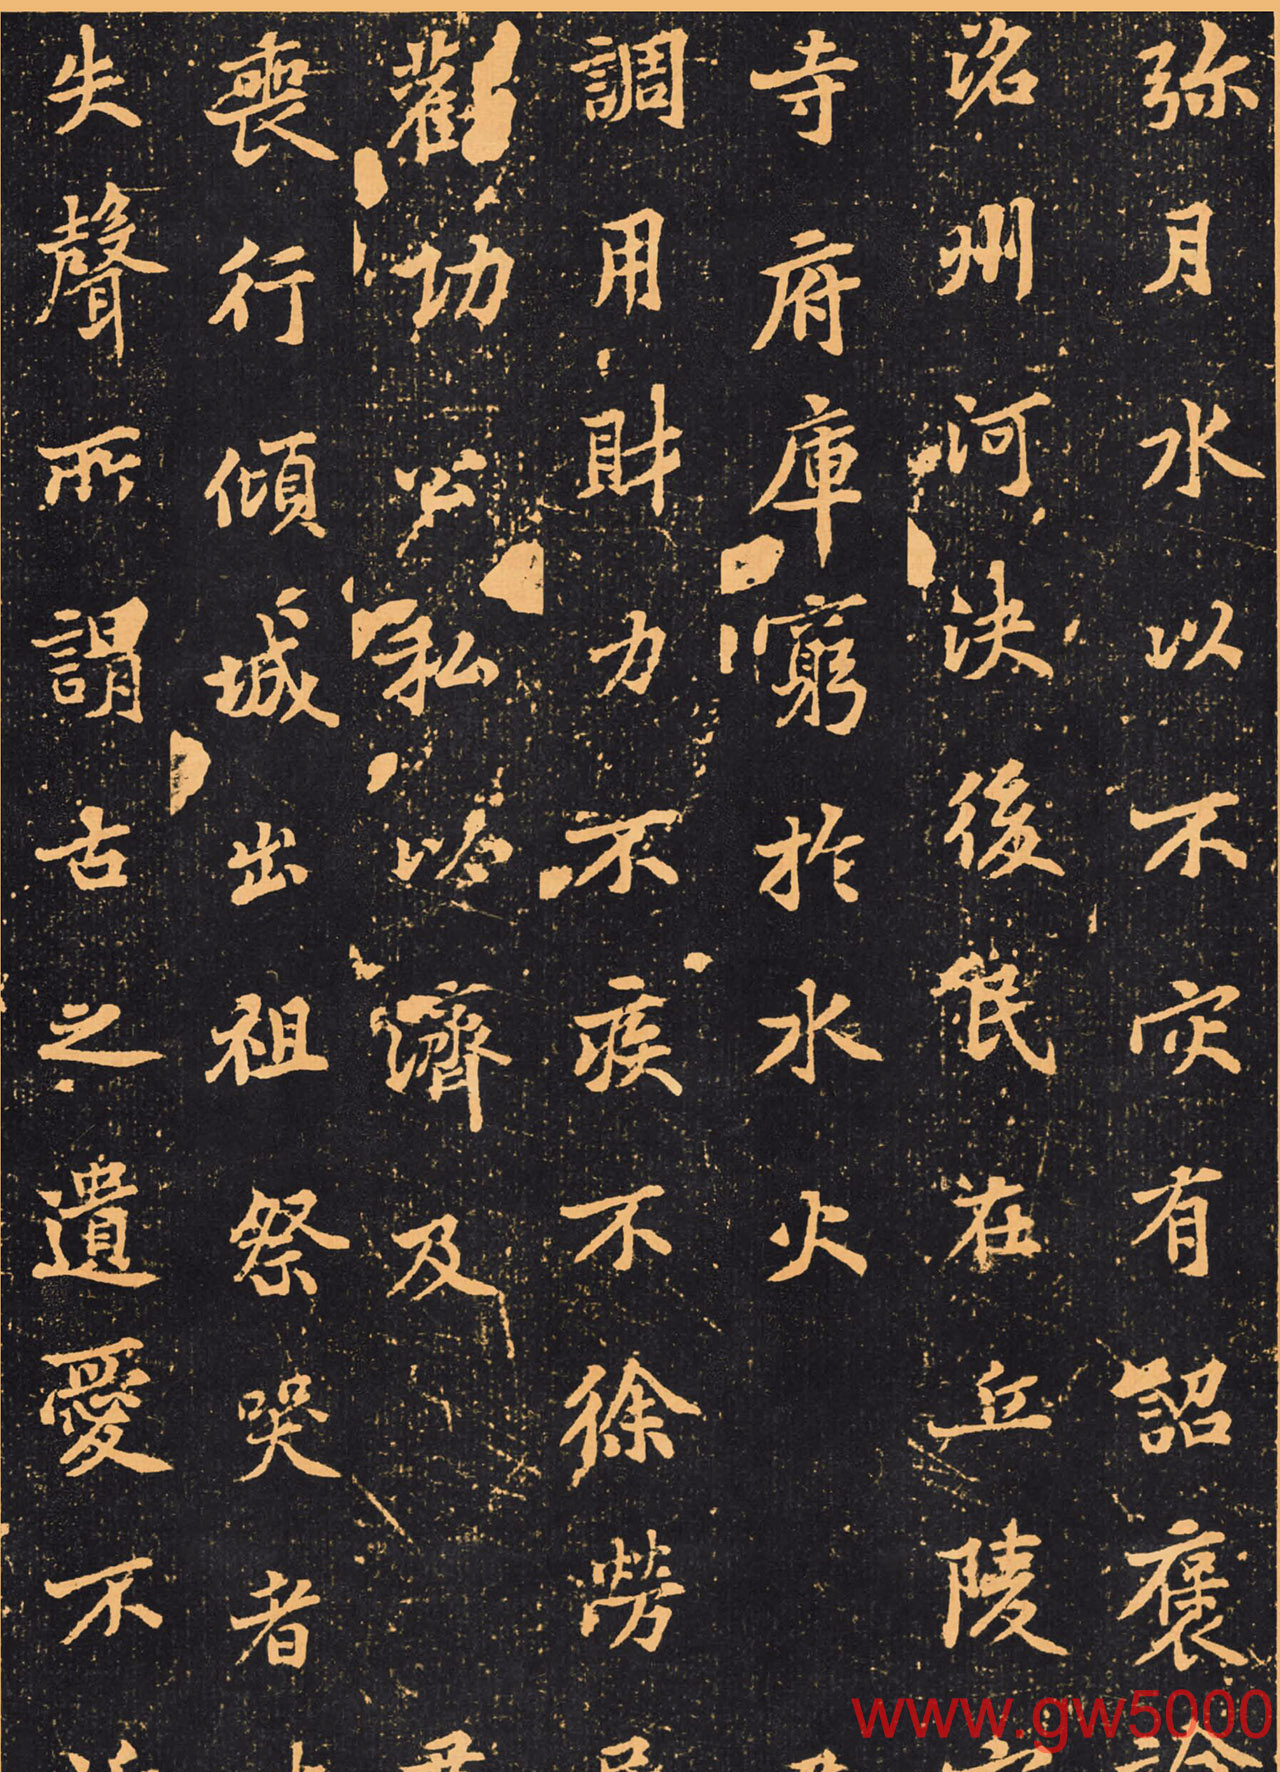 弥月水以不灾有詔褒
洺州河決後氓在丘陵
寺府庫窮於水火
調用財力不疾不徐勞
勸功公私以濟及
喪行傾城出祖祭哭者
失聲所謂古之遺愛不
www.gw5000